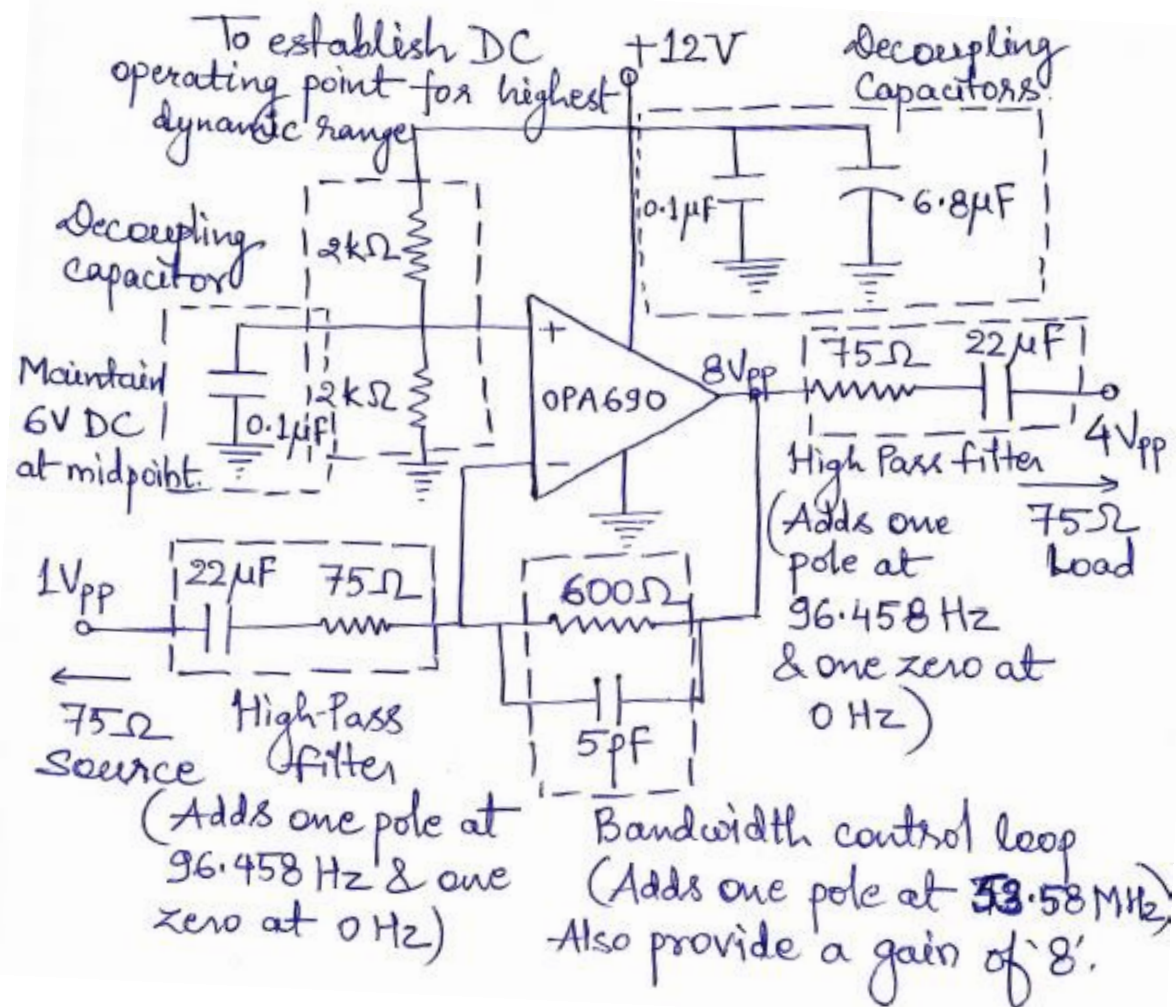 To establish DC
operating point for highest
dynamic range
+12V
Decoupling
Capacitors.
0.1μF
6.8μF
Decoupling
capacitor
2kΩ
Maintain
6V DC
at midpoint.
0.1μF
2kΩ
+
-
OPA690
8Vpp
75Ω
22μF
4Vpp
High Pass filter
(Adds one
pole at
96.458 Hz
& one zero at
0 Hz)
75Ω
Load
1Vpp
22μF
75Ω
75Ω
Source
High-Pass
filter
(Adds one pole at
96.458 Hz & one
zero at 0 Hz)
600Ω
5pF
Bandwidth control loop
(Adds one pole at 53.58 MHz)
Also provide a gain of '8'.